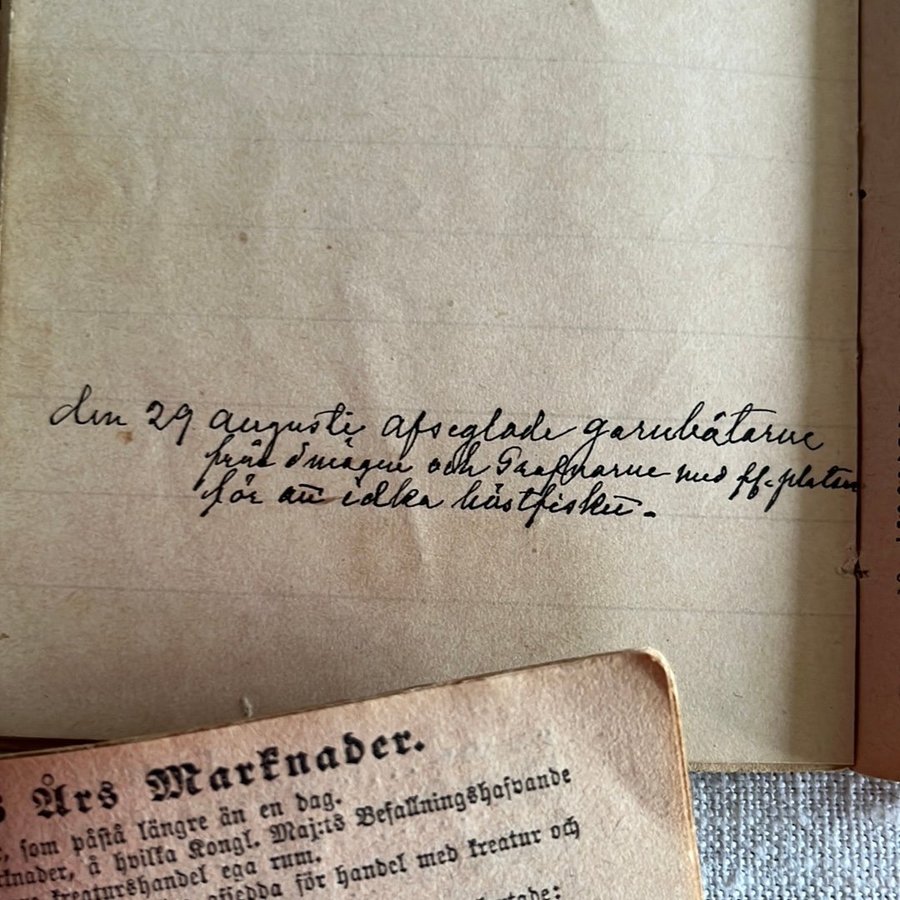 den 29 augusti afseglade garnbåtarne
från och med ff. platser
för att idka höstfiske.
Års Marknader.
som påstå längre än en dag.
å hvilka Kongl. Maj:ts Befallningshafvande
kreaturshandel ega rum.
afsedda för handel med kreatur och